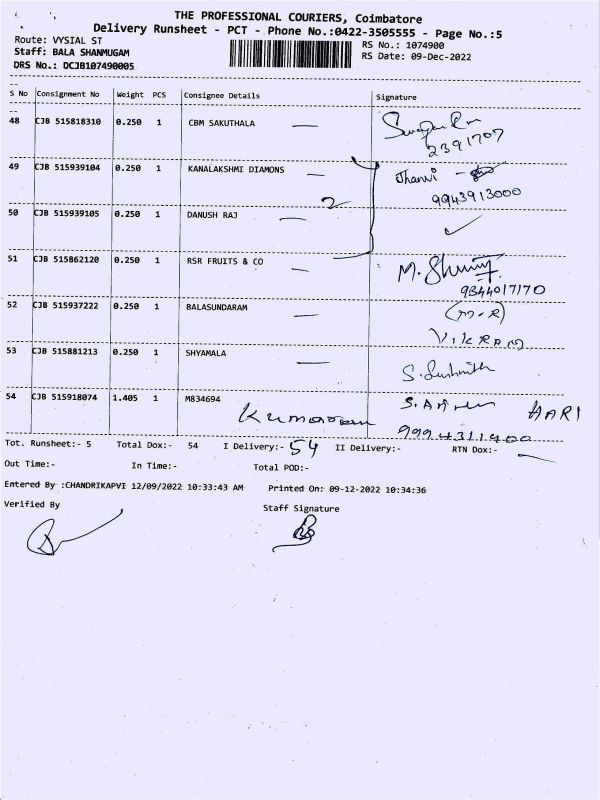 THE PROFESSIONAL COURIERS, Coimbatore
Delivery Runsheet - PCT - Phone No.:0422-3505555 - Page No.:5
Route: VYSIAL ST
RS No.: 1074900
Staff: BALA SHANMUGAM
RS Date: 09-Dec-2022
DRS No.: DCJB107490005
S No Consignment No Weight PCS Consignee Details Signature
48 CJB 515818310 0.250 1 CBM SAKUTHALA
2391707
49 CJB 515939104 0.250 1 KANALAKSHMI DIAMONS Jhanvi
2 9943913000
50 CJB 515939105 0.250 1 DANUSH RAJ
51 CJB 515862120 0.250 1 RSR FRUITS & CO M.
9344017170
52 CJB 515937222 0.250 1 BALASUNDARAM (M-R)
VIKRAM
53 CJB 515881213 0.250 1 SHYAMALA
54 CJB 515918074 1.405 1 M834694 HARI
9994311400
Tot. Runsheet:- 5 Total Dox:- 54 I Delivery:- 54 II Delivery:- RTN Dox:-
Out Time:- In Time:- Total POD:-
Entered By :CHANDRIKAPVI 12/09/2022 10:33:43 AM Printed On: 09-12-2022 10:34:36
Verified By Staff Signature